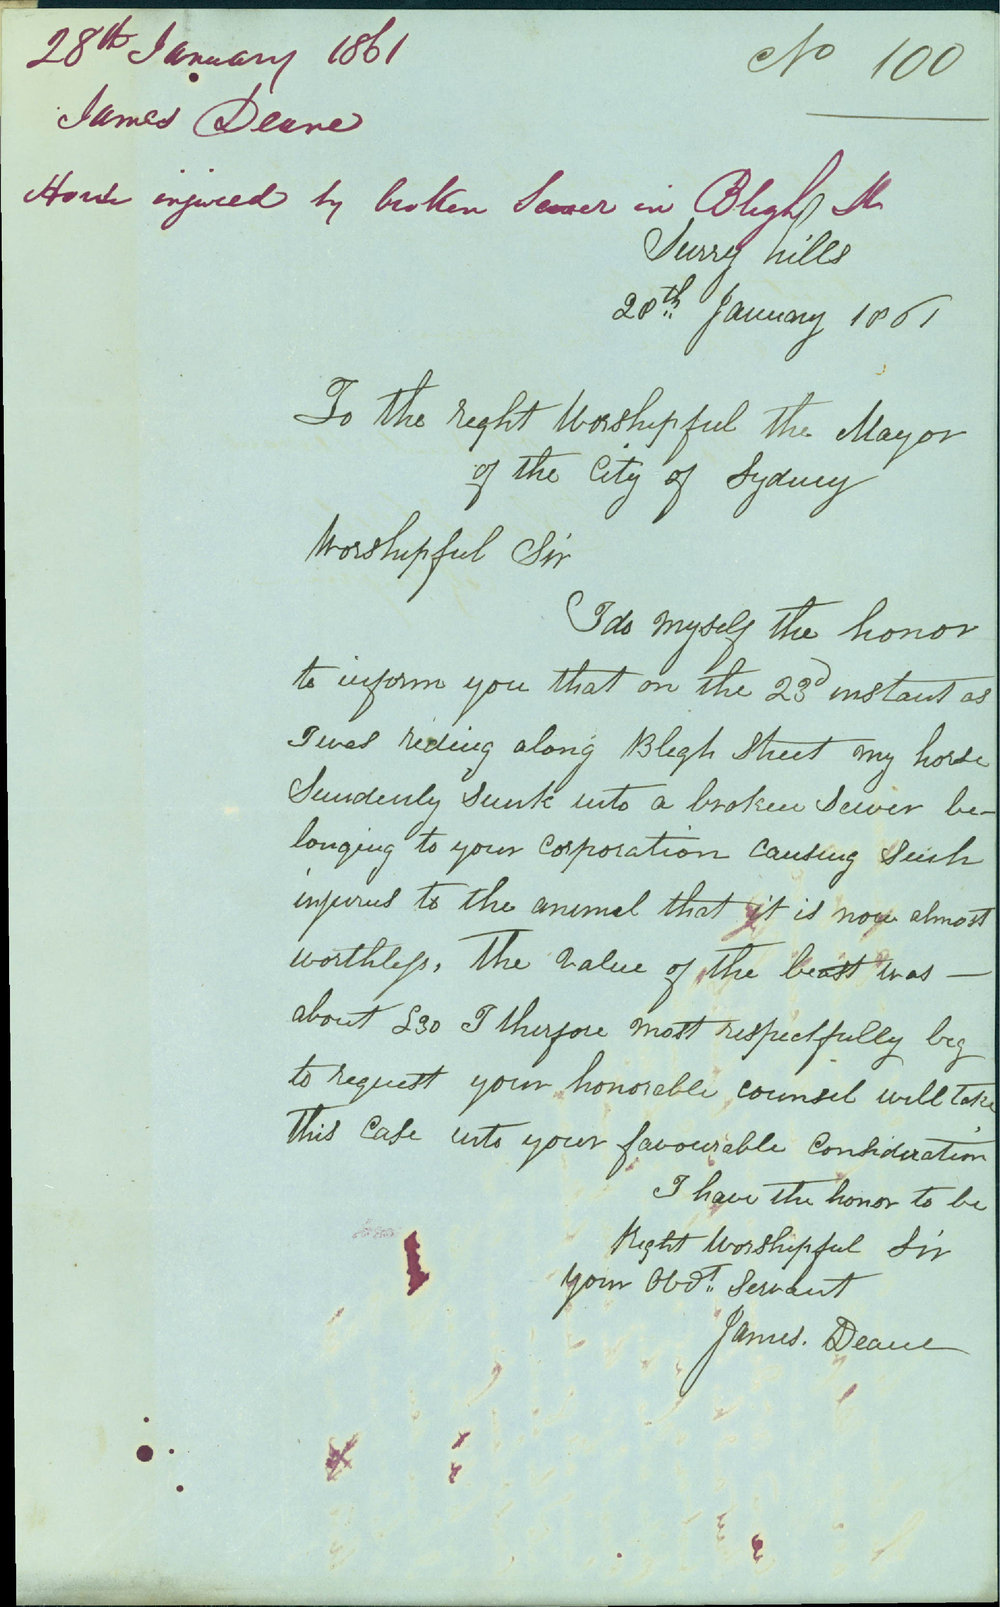 28th January 1861
No 100
James Deane
Horse injured by broken Sewer in Bligh St
Surry hills
28th January 1861
To the right Worshipful the Mayor
of the City of Sydney
Worshipful Sir
I do myself the honor
to inform you that on the 23d instant as
I was rideing along Bligh Street my horse
Sundenly Sunk into a broken Sewer be-
longing to your Corporation causing Such
injurus to the animal that it is now almost
worthless, The value of the beast was —
about £30 I therfore most respectfully beg
to request your honorable counsel will take
this case into your favourable Consideration
I have the honor to be
Right Worshipful Sir
your Obdt. Servant
James. Deane